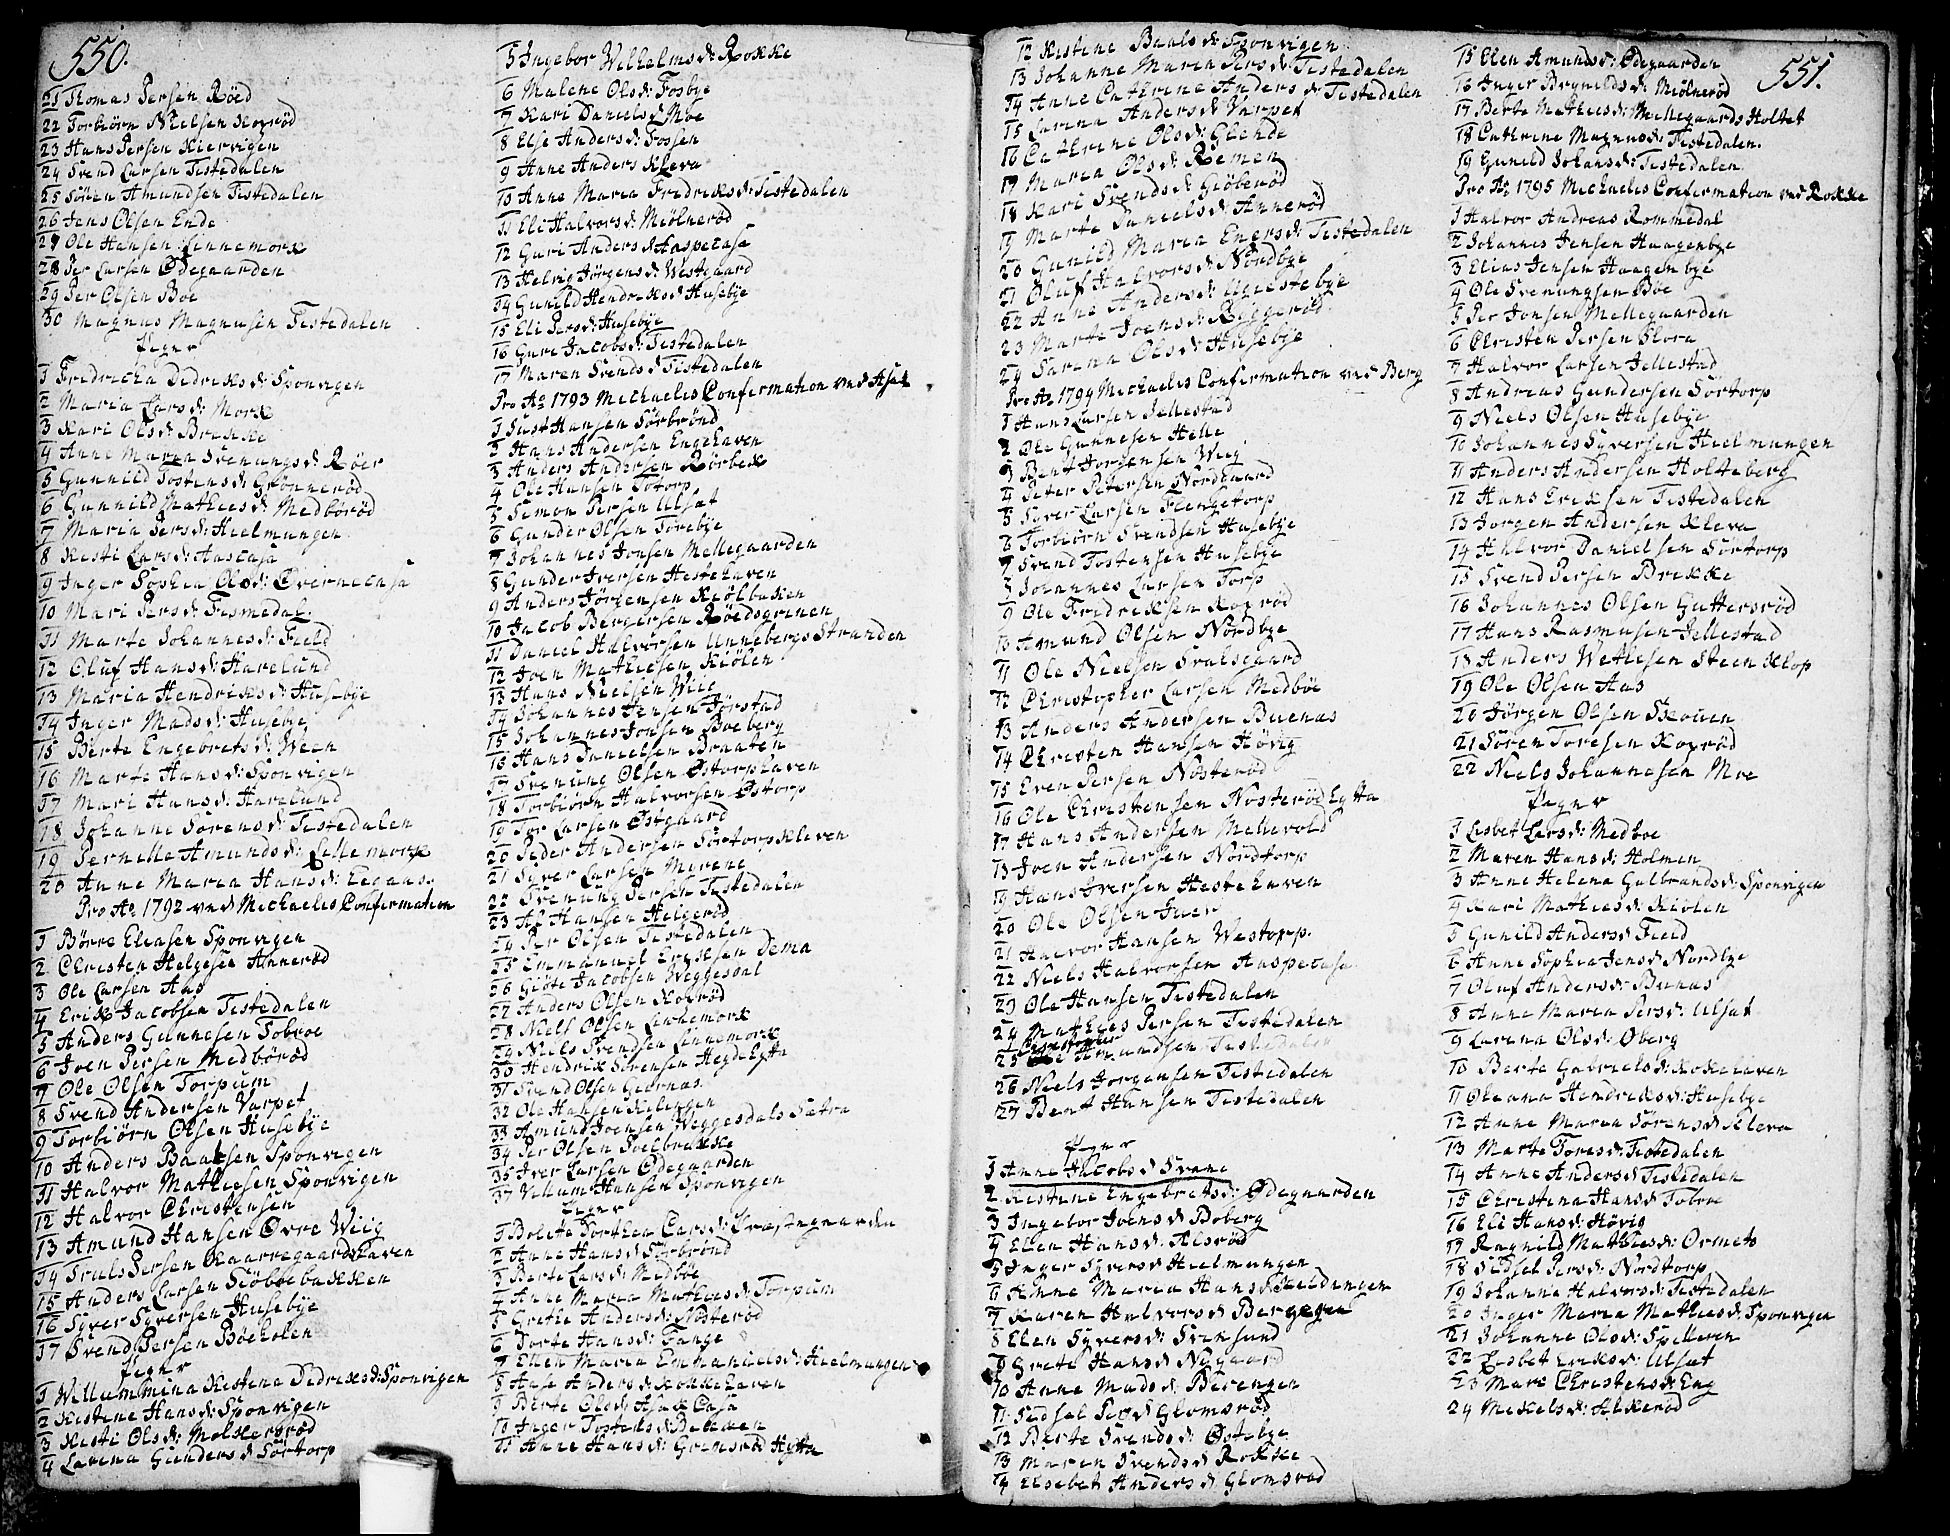 550.
21 Thomas Persen Röed
22 Torbiörn Nielsen Koxröd
23 Hans Persen Kiervigen
24 Svend Larsen Tistedalen
25 Sören Amundsen Tistedalen
26 Jens Olsen Ende
27 Ole Hansen Linnemork
28 Per Larsen Ödegaarden
29 Per Olsen Boe
30 Magnus Magnusen Tistedalen
Piger
1 Fredricka Didriks d: Sponvigen
2 Maria Lars d: Mork
3 Kari Ols d: Brekke
4 Anne Maren Svenungs d: Röer
5 Gunnild Tostens d: Grönneröd
6 Gunnild Mathies d: Medböröd
7 Maria Pers d: Hielmungen
8 Kisti Lars d: Aascasa
9 Inger Sophia Ols d: Överniecasa
10 Mari Pers d: Tismedal
11 Marte Johannes d: Field
12 Oluf Hans d: Harelund
13 Maria Hendriks d: Husebye
14 Inger Mads d: Husebye
15 Berte Engebrets d: Ween
16 Marte Hans d: Sponvigen
17 Mari Hans d: Harelund
18 Johanne Sörens d: Tistedalen
19 Pernille Amunds d: Lillemork
20 Anne Maria Hans d: Eegaass
Pro Ao 1792 ved Michaelis Confirmation
1 Börre Eliasen Sponvigen
2 Christen Helgesen Anneröd
3 Ole Larsen Aas
4 Erik Jacobsen Tistedalen
5 Anders Gunnesen Tobroe
6 Joen Persen Medböröd
7 Ole Olsen Torpum
8 Svend Andersen Varpet
9 Torbiörn Olsen Husebye
10 Anders Baalsen Sponvigen
11 Halvor Mathiesen Sponvigen
12 Halvor Christensen
13 Amund Hansen Övre Wiig
14 Truls Persen Kaarregaardshaven
15 Anders Larsen Siöboebakken
16 Syver Syversen Husebye
17 Svend Persen Böeholen
Piger
1 Willummina Kistena Didriks d: Sponvigen
2 Kistine Hans d: Sponvigen
3 Kisti Ols d: Molkeröd
4 Larina Gunders d: Sörtorp
5 Ingebor Wilhelms d: Rokke
6 Malene Ols d: Fosbye
7 Kari Daniels d: Moe
8 Else Anders d: Fossen
9 Anne Anders Kleva
10 Anne Maria Fredriks d: Tistedalen
11 Eli Halvors d: Miölneröd
12 Guri Anders d: Aaspecasa
13 Helvig Jörgens d: Westgaard
14 Gunild Hendriks d: Husebye
15 Eli Pers d: Husebye
16 Guri Jacobs d: Tistedalen
17 Maren Svends d: Tistedalen
Pro Ao 1793 Michaelis Confirmation ved Asak
1 Just Hansen Sörbrönd
2 Hans Andersen Engehaven
3 Anders Andersen Rörbek
4 Ole Hansen Totorp
5 Simon Persen Ulsat
6 Gunder Olsen Torebye
7 Johannes Jonsen Mellegaarden
8 Gunder Iversen Hestehaven
9 Anders Jörgensen Kiölbaken
10 Jacob Bergersen Röedsgrinen
11 Daniel Halvorsen Unnebergs Stranden
12 Joen Mathiesen Kiölen
13 Hans Nielsen Wiig
14 Johannes Jensen Torstad
15 Johannes Jonsen Boeberg
16 Hans Danielsen Braaten
17 Svenung Olsen Östorphaven
18 Torbiörn Halvorsen Östorp
19 Tor Larsen Östgaard
20 Peder Andersen Sörtorpskleven
21 Syver Larsen Myrene
22 Svenung Persen Tistedalen
23 Ag Hansen Helgeröd
24 Per Olsen Tistedalen
25 Emmanuel Eriksen Dema
26 Giöte Jacobsen Weggesdal
27 Anders Olsen Koxröd
28 Niels Olsen Linnemork
29 Niels Svendsen Linnemork
30 Hendrik Sörensen Hegdehytta
31 Svend Olsen Giernas
32 Ole Hansen Kilingen
33 Amund Joensen Weggesdals Sætra
34 Per Olsen Soelbrekke
35 Iver Larsen Ödegaarden
37 Villum Hansen Sponvigen
Piger
1 Bolette Dorthea Lars d: Præstegaarden
2 Anne Hans d: Sörbrönd
3 Berte Lars d: Medböe
4 Anne Maria Mathies d: Torpum
5 Grethe Anders d: Nösteröd
6 Dorte Hans d: Tange
7 Ellen Maria Emmanuels d: Hielmungen
8 Aase Anders d: Kokkehaven
9 Berte Ols d: Asak Casa
10 Inger Tostens d: Bakken
11 Anne Hans d: Grimsröd Hytta
12 Kistene Baals d: Sponvigen
13 Johanne Maria Pers d: Tistedalen
14 Anne Cathrine Anders d: Tistedalen
15 Larina Anders d: Varpet
16 Cathrine Ols d: Glende
17 Maria Ols d: Remen
18 Kari Svends d: Giöberöd
19 Marte Daniels d: Anneröd
20 Gunild Maria Engers d: Tistedalen
21 Oluf Halvors d: Nordbye
22 Anne Anders d: Unistebye
23 Marte Joens d: Biggeröd
24 Sarina Ols d: Husebye
Pro Ao 1794 Michaelis Confirmation ved Berg
1 Hans Larsen Jellestad
2 Ole Gunnesen Helle
3 Bent Jorgensen Wiig
4 Peter Petersen Nordgaard
5 Syver Larsen Fiengetorp
6 Torbiörn Svendsen Husebye
7 Svend Tostensen Husebye
8 Johannes Larsen Torp
9 Ole Fredriksen Koxröd
10 Amund Olsen Nordbye
11 Ole Nielsen Svalsgaard
12 Christopher Larsen Medböe
13 Anders Andersen Buenas
14 Christen Hansen Hövig
15 Even Persen Nösteröd
16 Ole Christensen Nosteröd hytta
17 Hans Andersen Mellevold
18 Joen Andersen Nordtorp
19 Hans Iversen Hestehaven
20 Ole Olsen Juer
21 Halvor Hansen Westorp
22 Niels Halvorsen Aaspecasa
23 Ole Hansen Tistedalen
24 Mathies Persen Tistedalen
25 Christopher Amundsen Tistedalen
26 Niels Jorgensen Tistedalen
27 Bent Hansen Tistedalen
Piger
1 Anne Jacobs d: Svane
2 Kistine Engebrets d: Ödegaarden
3 Ingebor Joens d: Boberg
4 Elen Hans d: Alsröd
5 Inger Syvers d: Hielmungen
6 Anne Maria Hans d: Kieldungen
7 Karen Halvors d: Bergegen
8 Elen Syvers d: Svinsund
9 Grete Hans d: Nygaard
10 Anne Mads d: Berengen
11 Sidsel Pers d: Glomsröd
12 Berte Svends d: Östebye
13 Maren Svends d: Rokke
14 Elsebet Anders d: Glomsröd
551.
15 Elen Amunds d: Ödegaarden
16 Inger Brynilds d: Miölneröd
17 Berte Mathies d: Mellegaards Holtet
18 Cathrine Magnus d: Tistedalen.
19 Gunild Johans d: Tistedalen
Pro Ao 1795 Michaelis Confirmation ved Rokke
1 Halvor Andreas Rommedal
2 Johannes Jensen Haagenbye
3 Elias Jensen Haagenbye
4 Ole Svenungsen Böe
5 Per Jonsen Mellegaarden
6 Christen Persen Flora
7 Halvor Larsen Jellestad
8 Andreas Gundersen Sörtorp
9 Niels Olsen Husebye
10 Johannes Syversen Hielmungen
11 Anders Andersen Holteberg
12 Hans Eriksen Tistedalen
13 Jorgen Andersen Kleva
14 Halvor Danielsen Sörtorp
15 Svend Persen Brekke
16 Johannes Olsen Guttersröd
17 Hans Rasmusen Jellestad
18 Anders Wetlesen Steenklop
19 Ole Olsen Aas
20 Jörgen Olsen Skouen
21 Sören Toresen Koxröd
22 Niels Johannesen Moe
Piger
1 Lisbet Lars d: Medboe
2 Maren Hans d: Holmen
3 Anne Helena Gulbrands d: Sponvigen
4 Kari Mathies d: Kiölen
5 Gunild Anders d: Field
6 Anne Sophia Jens d: Nordbye
7 Oluf Anders d: Bunas
8 Anne Maria Pers d: Ulsat
9 Larina Ols d: Öberg
10 Berte Gabriels d: Kokehaven
11 Oleana Hendriks d: Husebye
12 Anne Maria Sörens d: Kleva
13 Marte Tores d: Tistedalen
14 Anne Anders d: Tistedalen
15 Christina Hans d: Tobroe
16 Eli Hans d: Hövig
17 Ragnild Mathies d: Ormets
18 Sidsel Pers d: Nordtorp
19 Johanna Halvors d: Tistedalen
20 Inger Maria Mathies d: Sponvigen
21 Johanne Ols d: Spilleren
22 Lisbet Eriks d: Ulsat
23 Mari Christens d: Eng
24 Mikels d: Alkeröd